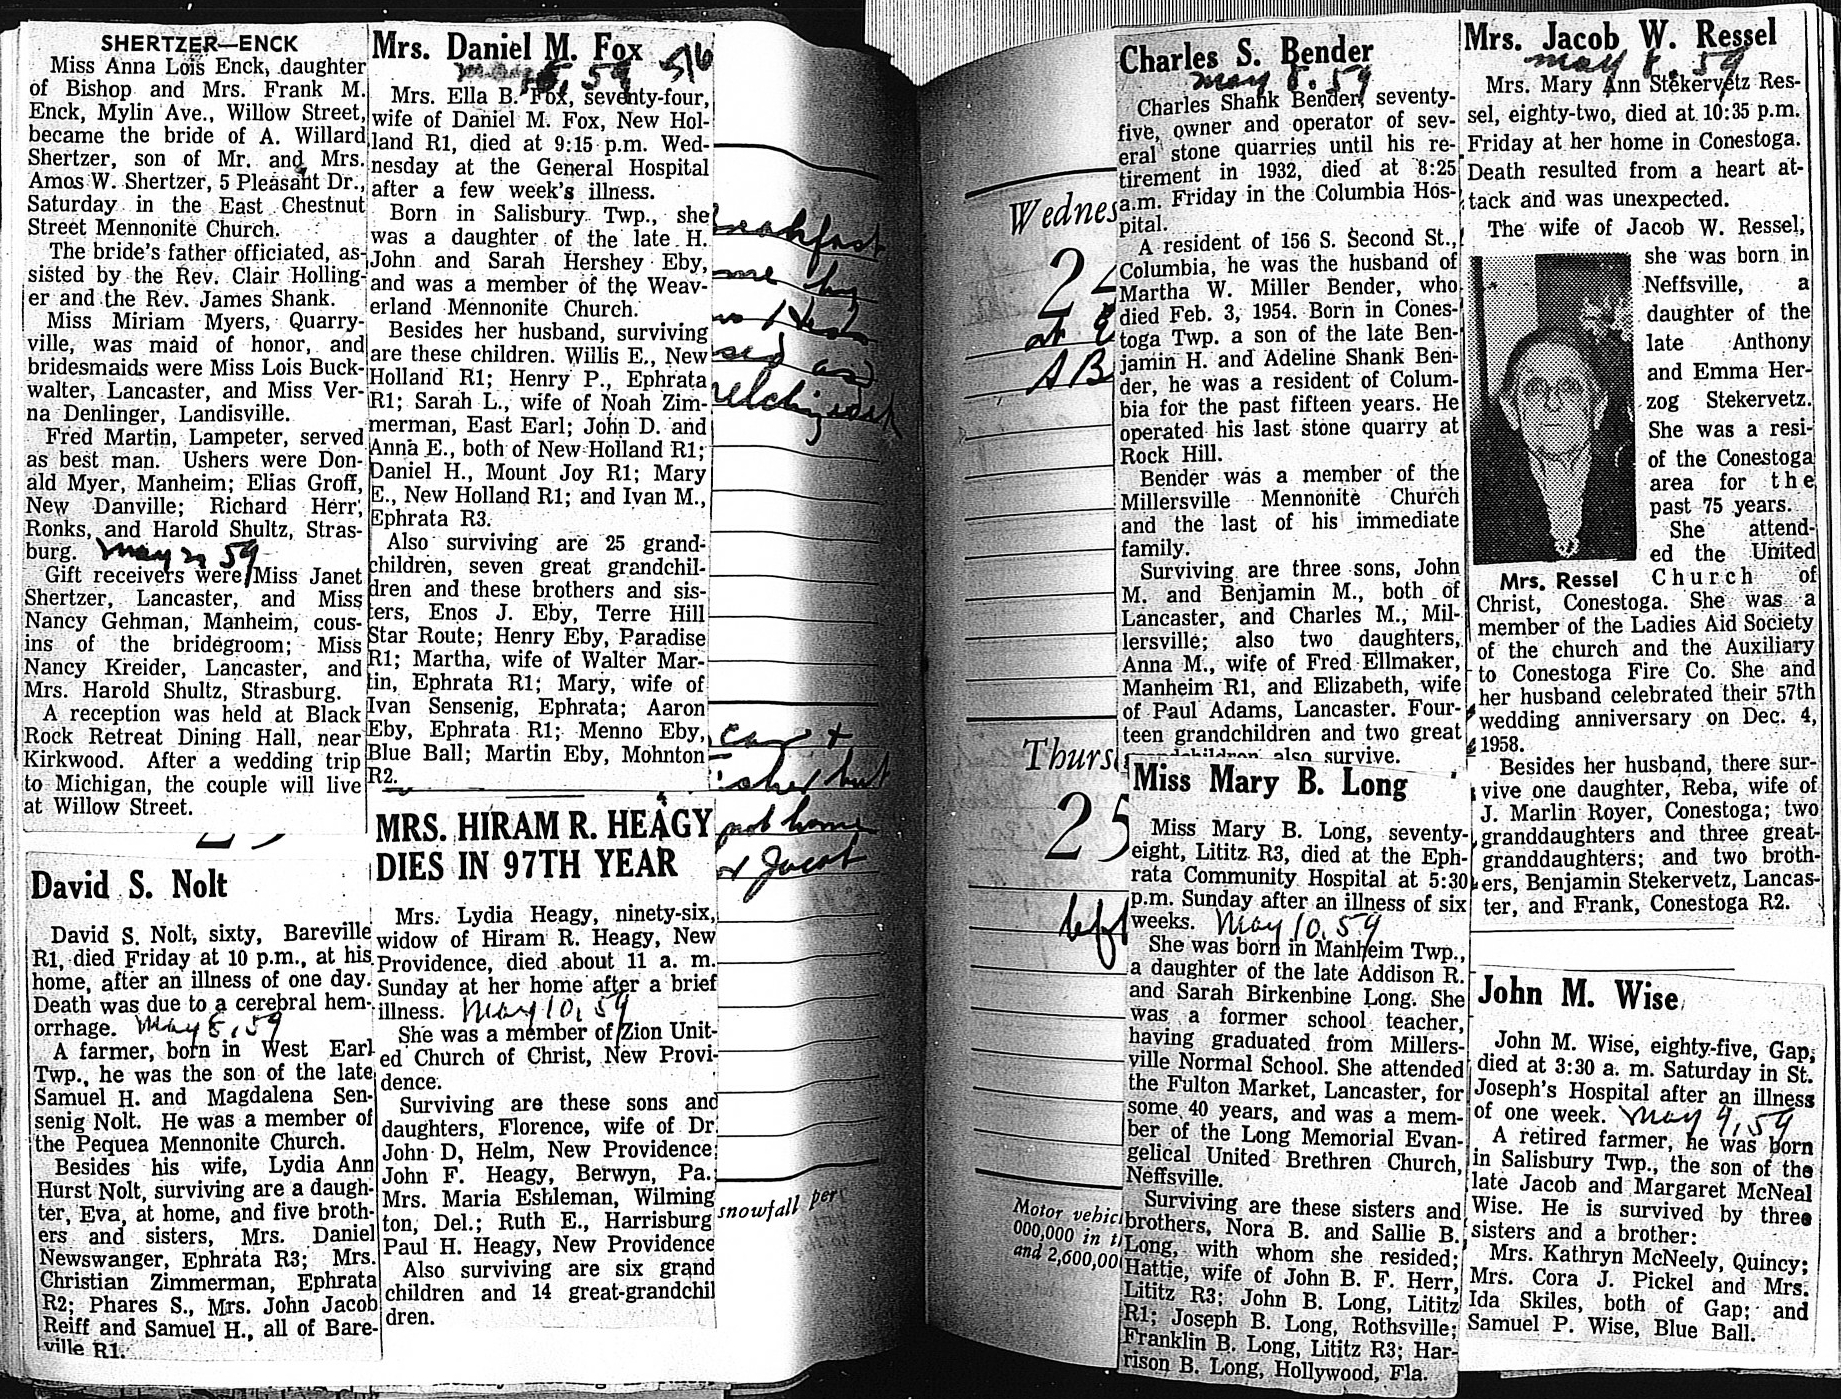 SHERTZER—ENCK
Miss Anna Lois Enck, daughter
of Bishop and Mrs. Frank M.
Enck, Mylin Ave., Willow Street,
became the bride of A. Willard
Shertzer, son of Mr. and Mrs.
Amos W. Shertzer, 5 Pleasant Dr.,
Saturday in the East Chestnut
Street Mennonite Church.
The bride's father officiated, as-
sisted by the Rev. Clair Holling-
er and the Rev. James Shank.
Miss Miriam Myers, Quarry-
ville, was maid of honor, and
bridesmaids were Miss Lois Buck-
walter, Lancaster, and Miss Ver-
na Denlinger, Landisville.
Fred Martin, Lampeter, served
as best man. Ushers were Don-
ald Myer, Manheim; Elias Groff,
New Danville; Richard Herr,
Ronks, and Harold Shultz, Stras-
burg. May 59
Gift receivers were Miss Janet
Shertzer, Lancaster, and Miss
Nancy Gehman, Manheim, cous-
ins of the bridegroom; Miss
Nancy Kreider, Lancaster, and
Mrs. Harold Shultz, Strasburg.
A reception was held at Black
Rock Retreat Dining Hall, near
Kirkwood. After a wedding trip
to Michigan, the couple will live
at Willow Street.
David S. Nolt
David S. Nolt, sixty, Bareville
R1, died Friday at 10 p.m., at his
home, after an illness of one day.
Death was due to a cerebral hem-
orrhage. May 8, 59
A farmer, born in West Earl
Twp., he was the son of the late
Samuel H. and Magdalena Sen-
senig Nolt. He was a member of
the Pequea Mennonite Church.
Besides his wife, Lydia Ann
Hurst Nolt, surviving are a daugh-
ter, Eva, at home, and five broth-
ers and sisters, Mrs. Daniel
Newswanger, Ephrata R3; Mrs.
Christian Zimmerman, Ephrata
R2; Phares S., Mrs. John Jacob
Reiff and Samuel H., all of Bare-
ville R1.
Mrs. Daniel M. Fox
59 5/6
Mrs. Ella B. Fox, seventy-four,
wife of Daniel M. Fox, New Hol-
land R1, died at 9:15 p.m. Wed-
nesday at the General Hospital
after a few week's illness.
Born in Salisbury Twp., she
was a daughter of the late H.
John and Sarah Hershey Eby,
and was a member of the Weav-
erland Mennonite Church.
Besides her husband, surviving
are these children. Willis E., New
Holland R1; Henry P., Ephrata
R1; Sarah L., wife of Noah Zim-
merman, East Earl; John D. and
Anna E., both of New Holland R1;
Daniel H., Mount Joy R1; Mary
E., New Holland R1; and Ivan M.,
Ephrata R3.
Also surviving are 25 grand-
children, seven great grandchil-
dren and these brothers and sis-
ters, Enos J. Eby, Terre Hill
Star Route; Henry Eby, Paradise
R1; Martha, wife of Walter Mar-
tin, Ephrata R1; Mary, wife of
Ivan Sensenig, Ephrata; Aaron
Eby, Ephrata R1; Menno Eby,
Blue Ball; Martin Eby, Mohnton
R2.
MRS. HIRAM R. HEAGY
DIES IN 97TH YEAR
Mrs. Lydia Heagy, ninety-six,
widow of Hiram R. Heagy, New
Providence, died about 11 a. m.
Sunday at her home after a brief
illness. May 10, 59
She was a member of Zion Unit-
ed Church of Christ, New Provi-
dence.
Surviving are these sons and
daughters, Florence, wife of Dr.
John D, Helm, New Providence;
John F. Heagy, Berwyn, Pa.
Mrs. Maria Eshleman, Wilming
ton, Del.; Ruth E., Harrisburg
Paul H. Heagy, New Providence
Also surviving are six grand
children and 14 great-grandchil
dren.
breakfast
car +
not home
Jacob
snowfall per
Wednes
24
at
AB
Thurs
25
left
Motor vehicl
000,000 in t
and 2,600,00
Charles S. Bender
May 8. 59
Charles Shank Bender, seventy-
five, owner and operator of sev-
eral stone quarries until his re-
tirement in 1932, died at 8:25
a.m. Friday in the Columbia Hos-
pital.
A resident of 156 S. Second St.,
Columbia, he was the husband of
Martha W. Miller Bender, who
died Feb. 3, 1954. Born in Cones-
toga Twp. a son of the late Ben-
jamin H. and Adeline Shank Ben-
der, he was a resident of Colum-
bia for the past fifteen years. He
operated his last stone quarry at
Rock Hill.
Bender was a member of the
Millersville Mennonite Church
and the last of his immediate
family.
Surviving are three sons, John
M. and Benjamin M., both of
Lancaster, and Charles M., Mil-
lersville; also two daughters,
Anna M., wife of Fred Ellmaker,
Manheim R1, and Elizabeth, wife
of Paul Adams, Lancaster. Four-
teen grandchildren and two great
grandchildren also survive.
Miss Mary B. Long
Miss Mary B. Long, seventy-
eight, Lititz R3, died at the Eph-
rata Community Hospital at 5:30
p.m. Sunday after an illness of six
weeks. May 10, 59
She was born in Manheim Twp.,
a daughter of the late Addison R.
and Sarah Birkenbine Long. She
was a former school teacher,
having graduated from Millers-
ville Normal School. She attended
the Fulton Market, Lancaster, for
some 40 years, and was a mem-
ber of the Long Memorial Evan-
gelical United Brethren Church,
Neffsville.
Surviving are these sisters and
brothers, Nora B. and Sallie B.
Long, with whom she resided;
Hattie, wife of John B. F. Herr,
Lititz R3; John B. Long, Lititz
R1; Joseph B. Long, Rothsville;
Franklin B. Long, Lititz R3; Har-
rison B. Long, Hollywood, Fla.
Mrs. Jacob W. Ressel
May 8. 59
Mrs. Mary Ann Stekervetz Res-
sel, eighty-two, died at 10:35 p.m.
Friday at her home in Conestoga.
Death resulted from a heart at-
tack and was unexpected.
The wife of Jacob W. Ressel,
she was born in
Neffsville, a
daughter of the
late Anthony
and Emma Her-
zog Stekervetz.
She was a resi-
of the Conestoga
area for the
past 75 years.
She attend-
ed the United
Mrs. Ressel Church of
Christ, Conestoga. She was a
member of the Ladies Aid Society
of the church and the Auxiliary
to Conestoga Fire Co. She and
her husband celebrated their 57th
wedding anniversary on Dec. 4,
1958.
Besides her husband, there sur-
vive one daughter, Reba, wife of
J. Marlin Royer, Conestoga; two
granddaughters and three great-
granddaughters; and two broth-
ers, Benjamin Stekervetz, Lancas-
ter, and Frank, Conestoga R2.
John M. Wise
John M. Wise, eighty-five, Gap,
died at 3:30 a. m. Saturday in St.
Joseph's Hospital after an illness
of one week. May 9, 59
A retired farmer, he was born
in Salisbury Twp., the son of the
late Jacob and Margaret McNeal
Wise. He is survived by three
sisters and a brother:
Mrs. Kathryn McNeely, Quincy;
Mrs. Cora J. Pickel and Mrs.
Ida Skiles, both of Gap; and
Samuel P. Wise, Blue Ball.